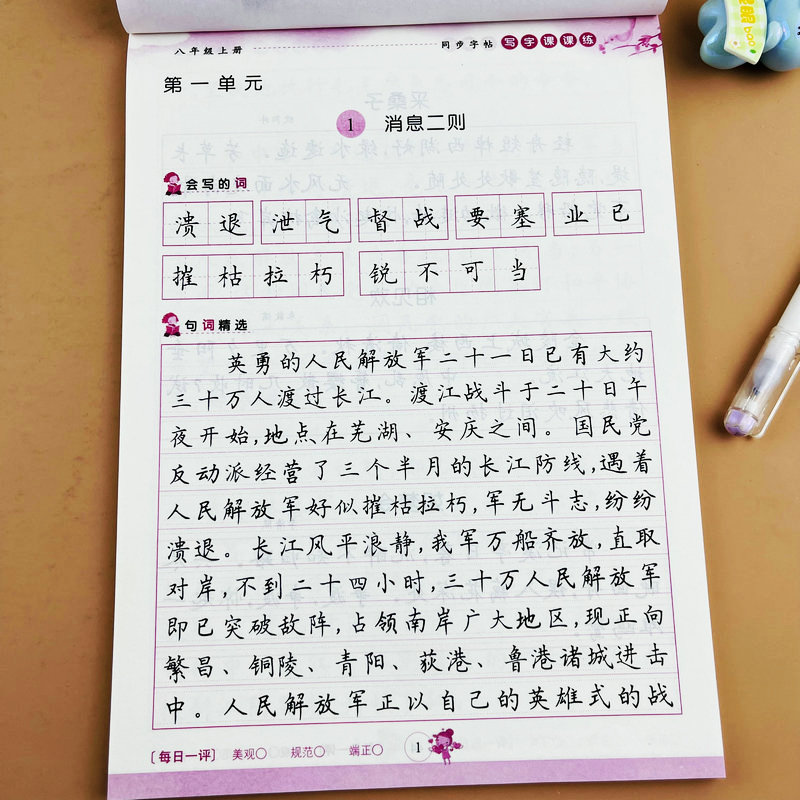 八年级上册 同步字帖 写字课课练
第一单元
1 消息二则
会写的词
溃退 泄气 督战 要塞 业已
摧枯拉朽 锐不可当
句词精选
英勇的人民解放军二十一日已有大约
三十万人渡过长江。渡江战斗于二十日午
夜开始,地点在芜湖、安庆之间。国民党
反动派经营了三个半月的长江防线,遇着
人民解放军好似摧枯拉朽,军无斗志,纷纷
溃退。长江风平浪静,我军万船齐放,直取
对岸,不到二十四小时,三十万人民解放军
即已突破敌阵,占领南岸广大地区,现正向
繁昌、铜陵、青阳、荻港、鲁港诸城进击
中。人民解放军正以自己的英雄式的战
[每日一评] 美观〇 规范〇 端正〇 1